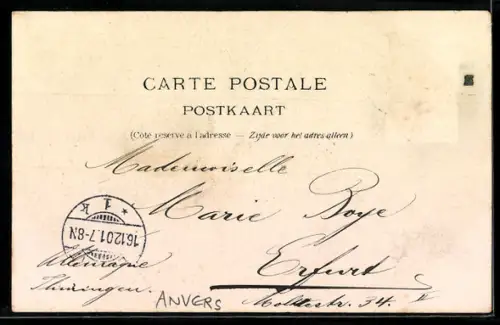 CARTE POSTALE
POSTKAART
(Côté réservé à l'adresse — Zijde voor het adres alleen)
Mademoiselle
Marie Boye
Erfurt
Allemagne
Thüringen.
Moltkestr. 34. II
ANVERS
* 1 k
16.12.01.7-8N